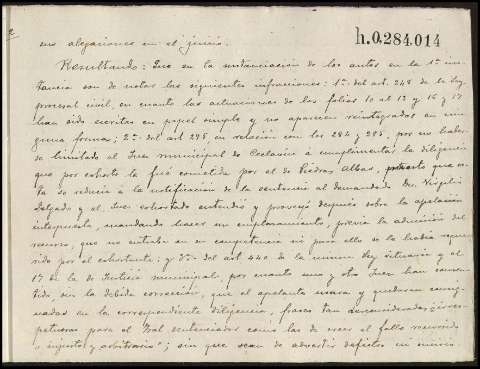 h.0.284.014
sus alegaciones en el juicio.
Resultando: Que en la sustanciación de los autos en la 1ª ins-
tancia son de notar las siguientes infracciones: 1ª del art. 248 de la ley
procesal civil, en cuanto las actuaciones de los folios 10 al 13 y 16 y 17
han sido escritas en papel simple y no aparecen reintegradas en nin-
guna forma; 2ª del art 295 en relación con los 284 y 285, por no haber-
se limitado el Juez municipal de Ceclavin á cumplimentar la diligencia
que por exhorto le fué cometida por el de Piedras Albas, puesto que es-
ta se reducía á la notificación de la sentencia al demandado Don Virgilio
Delgado y el Juez exhortado entendió y proveyó después sobre la apelación
interpuesta, mandando hacer un emplazamiento, previa la admisión del
recurso, que no entraba en su competencia ni para ello se le había reque-
rido por el exhortante; y 3ª del art 440 de la misma ley rituaria y el
17 de la de Justicia municipal, por cuanto uno y otro Juez han consen-
tido, sin la debida corrección, que el apelante usara y quedaran consig-
nadas en la correspondiente diligencia, frases tan desconsideradas é irres-
petuosas para el Tral sentenciador como las de creer el fallo recurrido
"injusto y arbitrario"; sin que sean de advertir defectos en